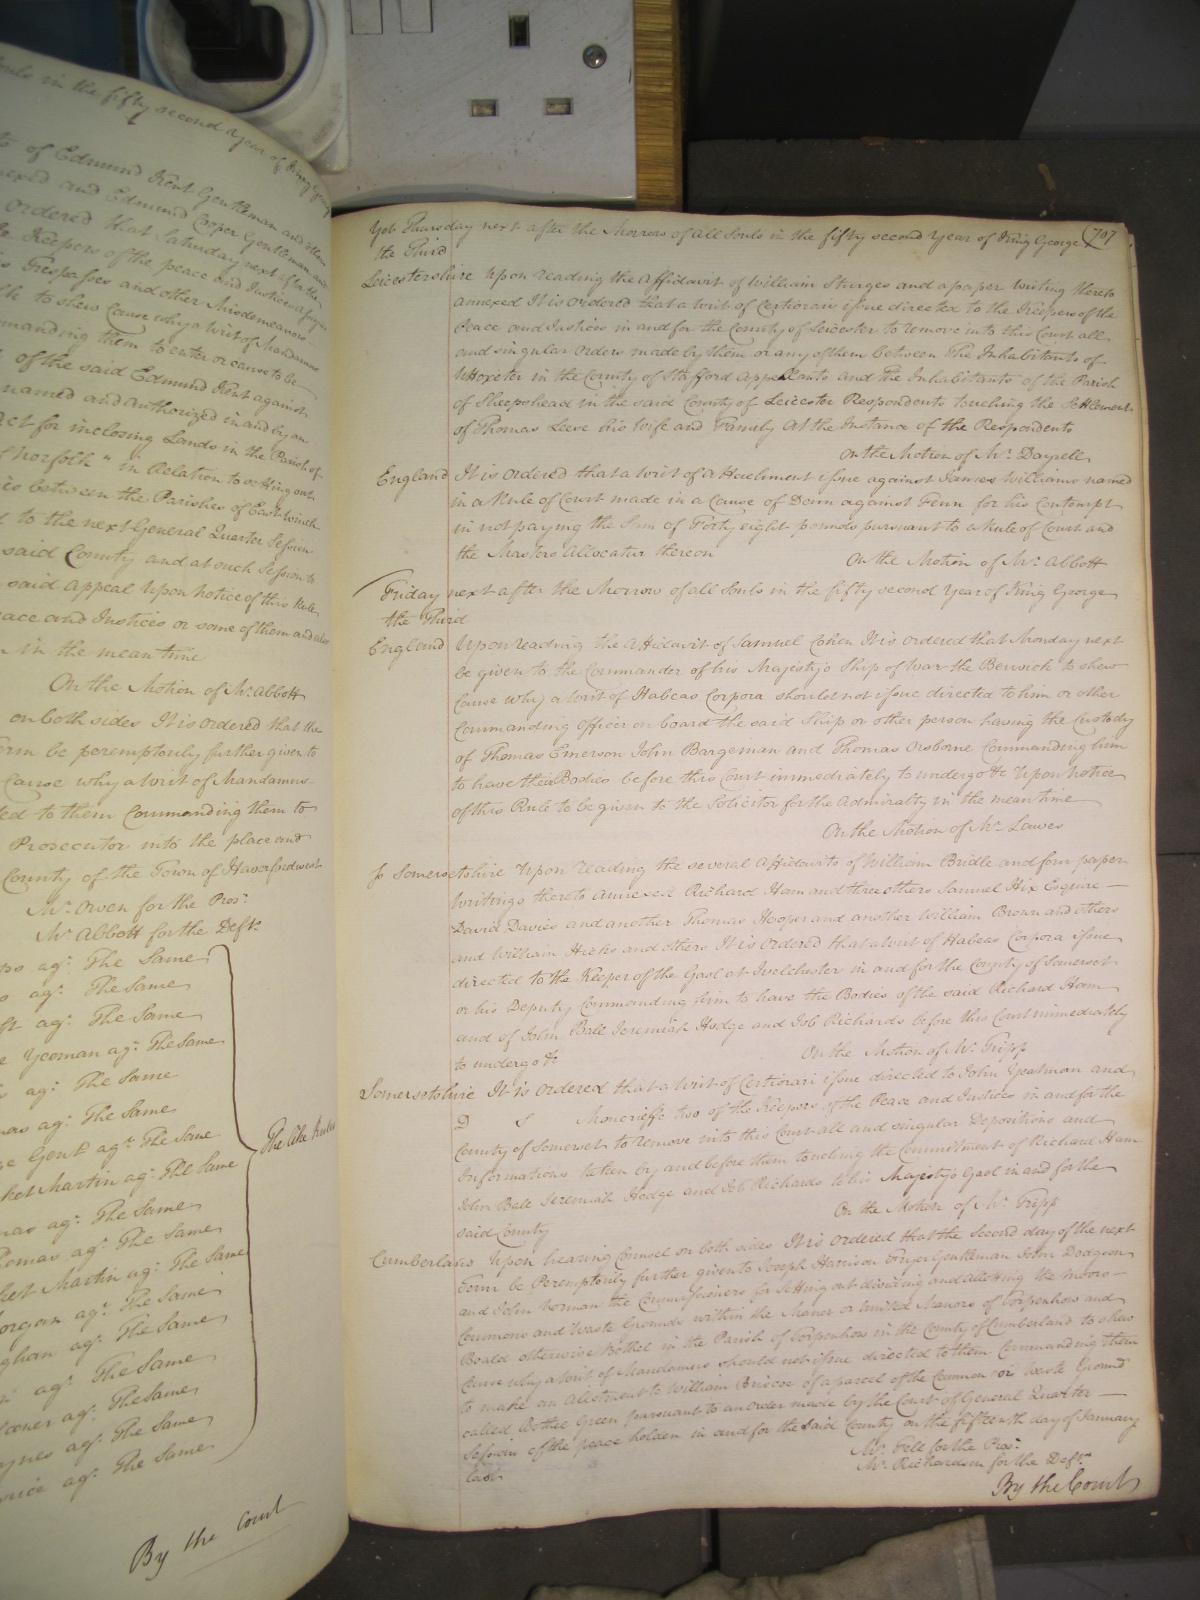 Souls in the fifty second Year of King George
of Edmund Kent Gentleman and
annexed and Edmund Cooper Gentleman and
ordered that Saturday next after the
Keepers of the peace and Justices
Trespasses and other Misdemeanors
to shew Cause why a Writ of Mandamus
Commanding them to enter or cause to be
of the said Edmund Kent against
named and authorized in and by an
Act for inclosing Lands in the Parish of
Norfolk" in Relation to setting out
between the Parishes of East Winch
to the next General Quarter Session
said County and at such Session to
said Appeal Upon notice of this Rule
Peace and Justices or some of them and also
in the mean time
On the Motion of Mr. Abbott
on both sides It is ordered that the
Term be peremptorily further given to
Cause why a Writ of Mandamus
directed to them Commanding them to
Prosecutor into the place and
County of the Town of Haverfordwest
Mr. Owen for the Pros:
Mr. Abbott for the Deft.
agt. The Same
agt. The Same
agt. The Same
Yeoman agt. The Same
agt. The Same
agt. The Same
Gent. agt. The Same
Martin agt. The Same
agt. The Same
Thomas agt. The Same
Martin agt. The Same
Morgan agt. The Same
agt. The Same
agt. The Same
agt. The Same
agt. The Same
agt. The Same
The like Rules
By the Court
Yet Thursday next after the Morrow of all Souls in the fifty second Year of King George 707
the Third
Leicestershire Upon reading the Affidavit of William Sturges and a paper Writing thereto
annexed It is ordered that a writ of Certiorari issue directed to the Keepers of the
Peace and Justices in and for the County of Leicester to remove into this Court all
and singular Orders made by them or any of them between The Inhabitants of
Uttoxeter in the County of Stafford Appellants and The Inhabitants of the Parish
of Sheepshead in the said County of Leicester Respondents touching the Settlement
of Thomas Leese his Wife and Family At the Instance of the Respondents
On the Motion of Mr. Dayrell
England It is ordered that a writ of Attachment issue against James Williams named
in a Rule of Court made in a Cause of Denn against Fenn for his Contempt
in not paying the Sum of Forty eight pounds pursuant to a Rule of Court and
the Masters Allocatur thereon
On the Motion of Mr. Abbott
Friday next after the Morrow of all Souls in the fifty second Year of King George
the Third
England Upon reading the Affidavit of Samuel Cohen It is ordered that Monday next
be given to the Commander of his Majesty's Ship of War the Berwick to shew
Cause why a Writ of Habeas Corpora should not issue directed to him or other
Commanding Officer on board the said Ship or other person having the Custody
of Thomas Emerson John Bargeman and Thomas Osborne Commanding him
to have their Bodies before this Court immediately to undergo &c Upon notice
of this Rule to be given to the Solicitor for the Admiralty in the mean time
On the Motion of Mr. Lawes
Somersetshire Upon reading the several Affidavits of William Bridle and four paper
Writings thereto annexed Richard Ham and three others Samuel Hix Esquire
David Davies and another Thomas Hooper and another William Brown and others
and William Hicks and others It is ordered that a Writ of Habeas Corpora issue
directed to the Keeper of the Gaol at Ivelchester in and for the County of Somerset
or his Deputy Commanding him to have the Bodies of the said Richard Ham
and of John Ball Jeremiah Hodge and Job Richards before this Court immediately
to undergo &c
On the Motion of Mr. Tripp
Somersetshire It is ordered that a Writ of Certiorari issue directed to John Yeatman and
D S Moncrieffe two of the Keepers of the Peace and Justices in and for the
County of Somerset to remove into this Court all and singular Depositions and
Informations taken by and before them touching the Commitment of Richard Ham
John Ball Jeremiah Hodge and Job Richards to his Majesty's Gaol in and for the
said County
On the Motion of Mr. Tripp
Cumberland Upon hearing Counsel on both sides It is ordered that the Second day of the next
Term be Peremptorily further given to Joseph Harrison Fryer Gentleman John Dodgson
and John Norman the Commissioners for setting out dividing and allotting the Moors
Commons and Waste Grounds within the Manor or united Manors of Torpenhow and
Boald otherwise Bothel in the Parish of Torpenhow in the County of Cumberland to shew
Cause why a Writ of Mandamus should not issue directed to them Commanding them
to make an Allotment to William Briscoe of a parcel of the Common or Waste Ground
called Bothel Green pursuant to an Order made by the Court of General Quarter
Session of the peace holden in and for the said County on the fifteenth day of January
last
Mr. Tell for the Pros:
Mr. Richardson for the Deft.
By the Court